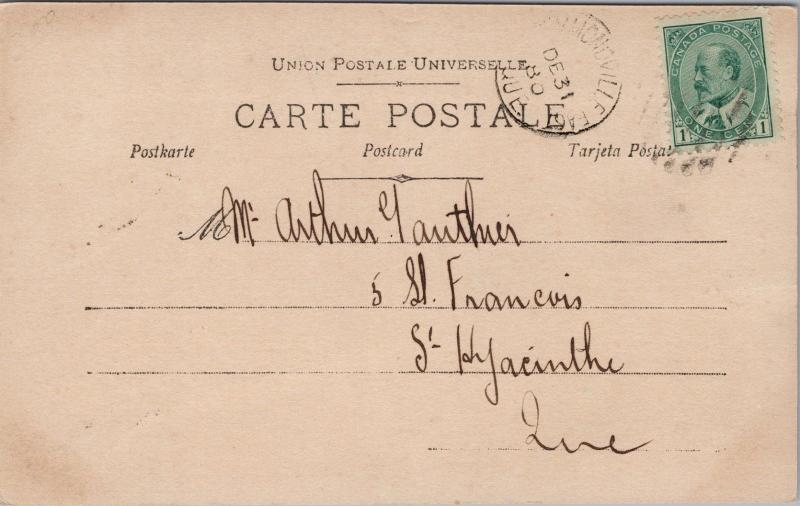 UNION POSTALE UNIVERSELLE
CARTE POSTALE
Postkarte Postcard Tarjeta Postal
CANADA POSTAGE
1 ONE CENT 1
DE 31
Mr Arthur Gauthier
5 St. François
St Hyacinthe
Que